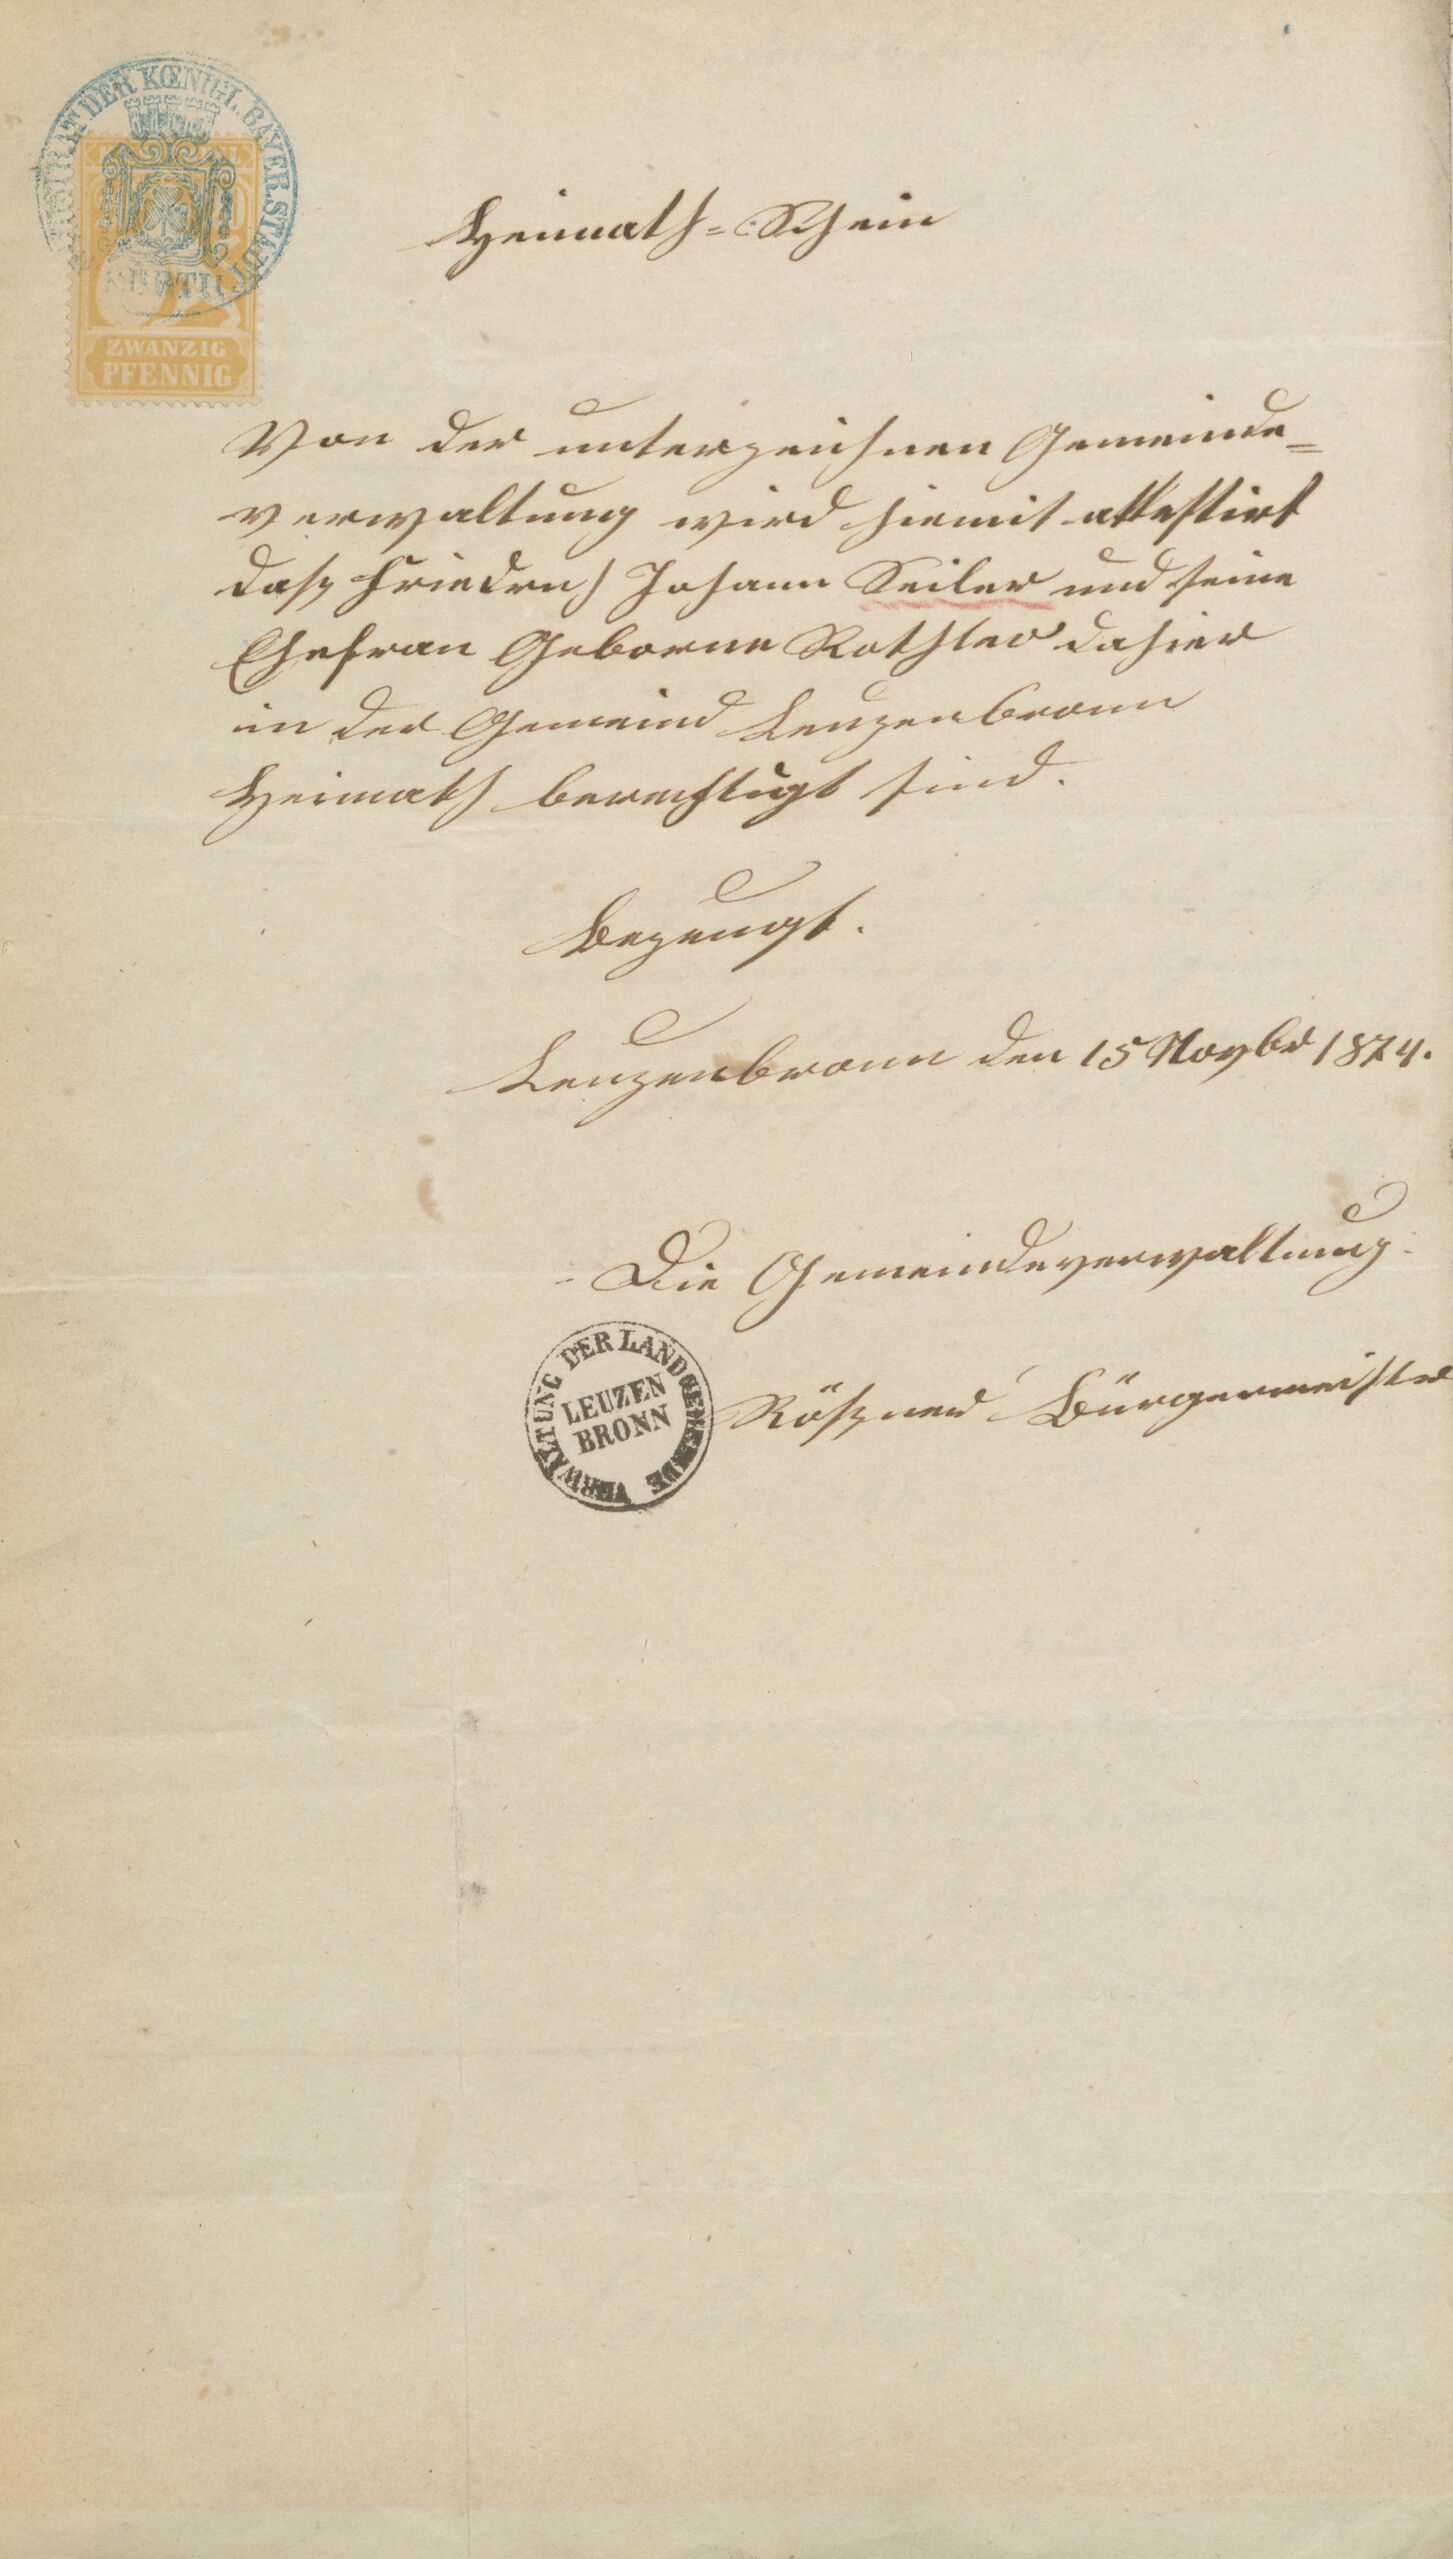 MAGISTRAT DER KŒNIGL. BAYER. STADT
FÜRTH
ZWANZIG
PFENNIG
Heimath=Schein
Von der unterzeichnen Gemeinde=
verwaltung wird hiemit attestirt
daß Friedrich Johann Seiler und seine
Ehefrau Geborne Rothler dahier
in der Gemeind Leuzenbronn
Heimath berechtigt sind.
Bezeugt.
Leuzenbronn den 15 Novbr 1874.
Die Gemeindeverwaltung.
VERWALTUNG DER LANDGEMEINDE
LEUZEN
BRONN
Rößner Bürgermeister